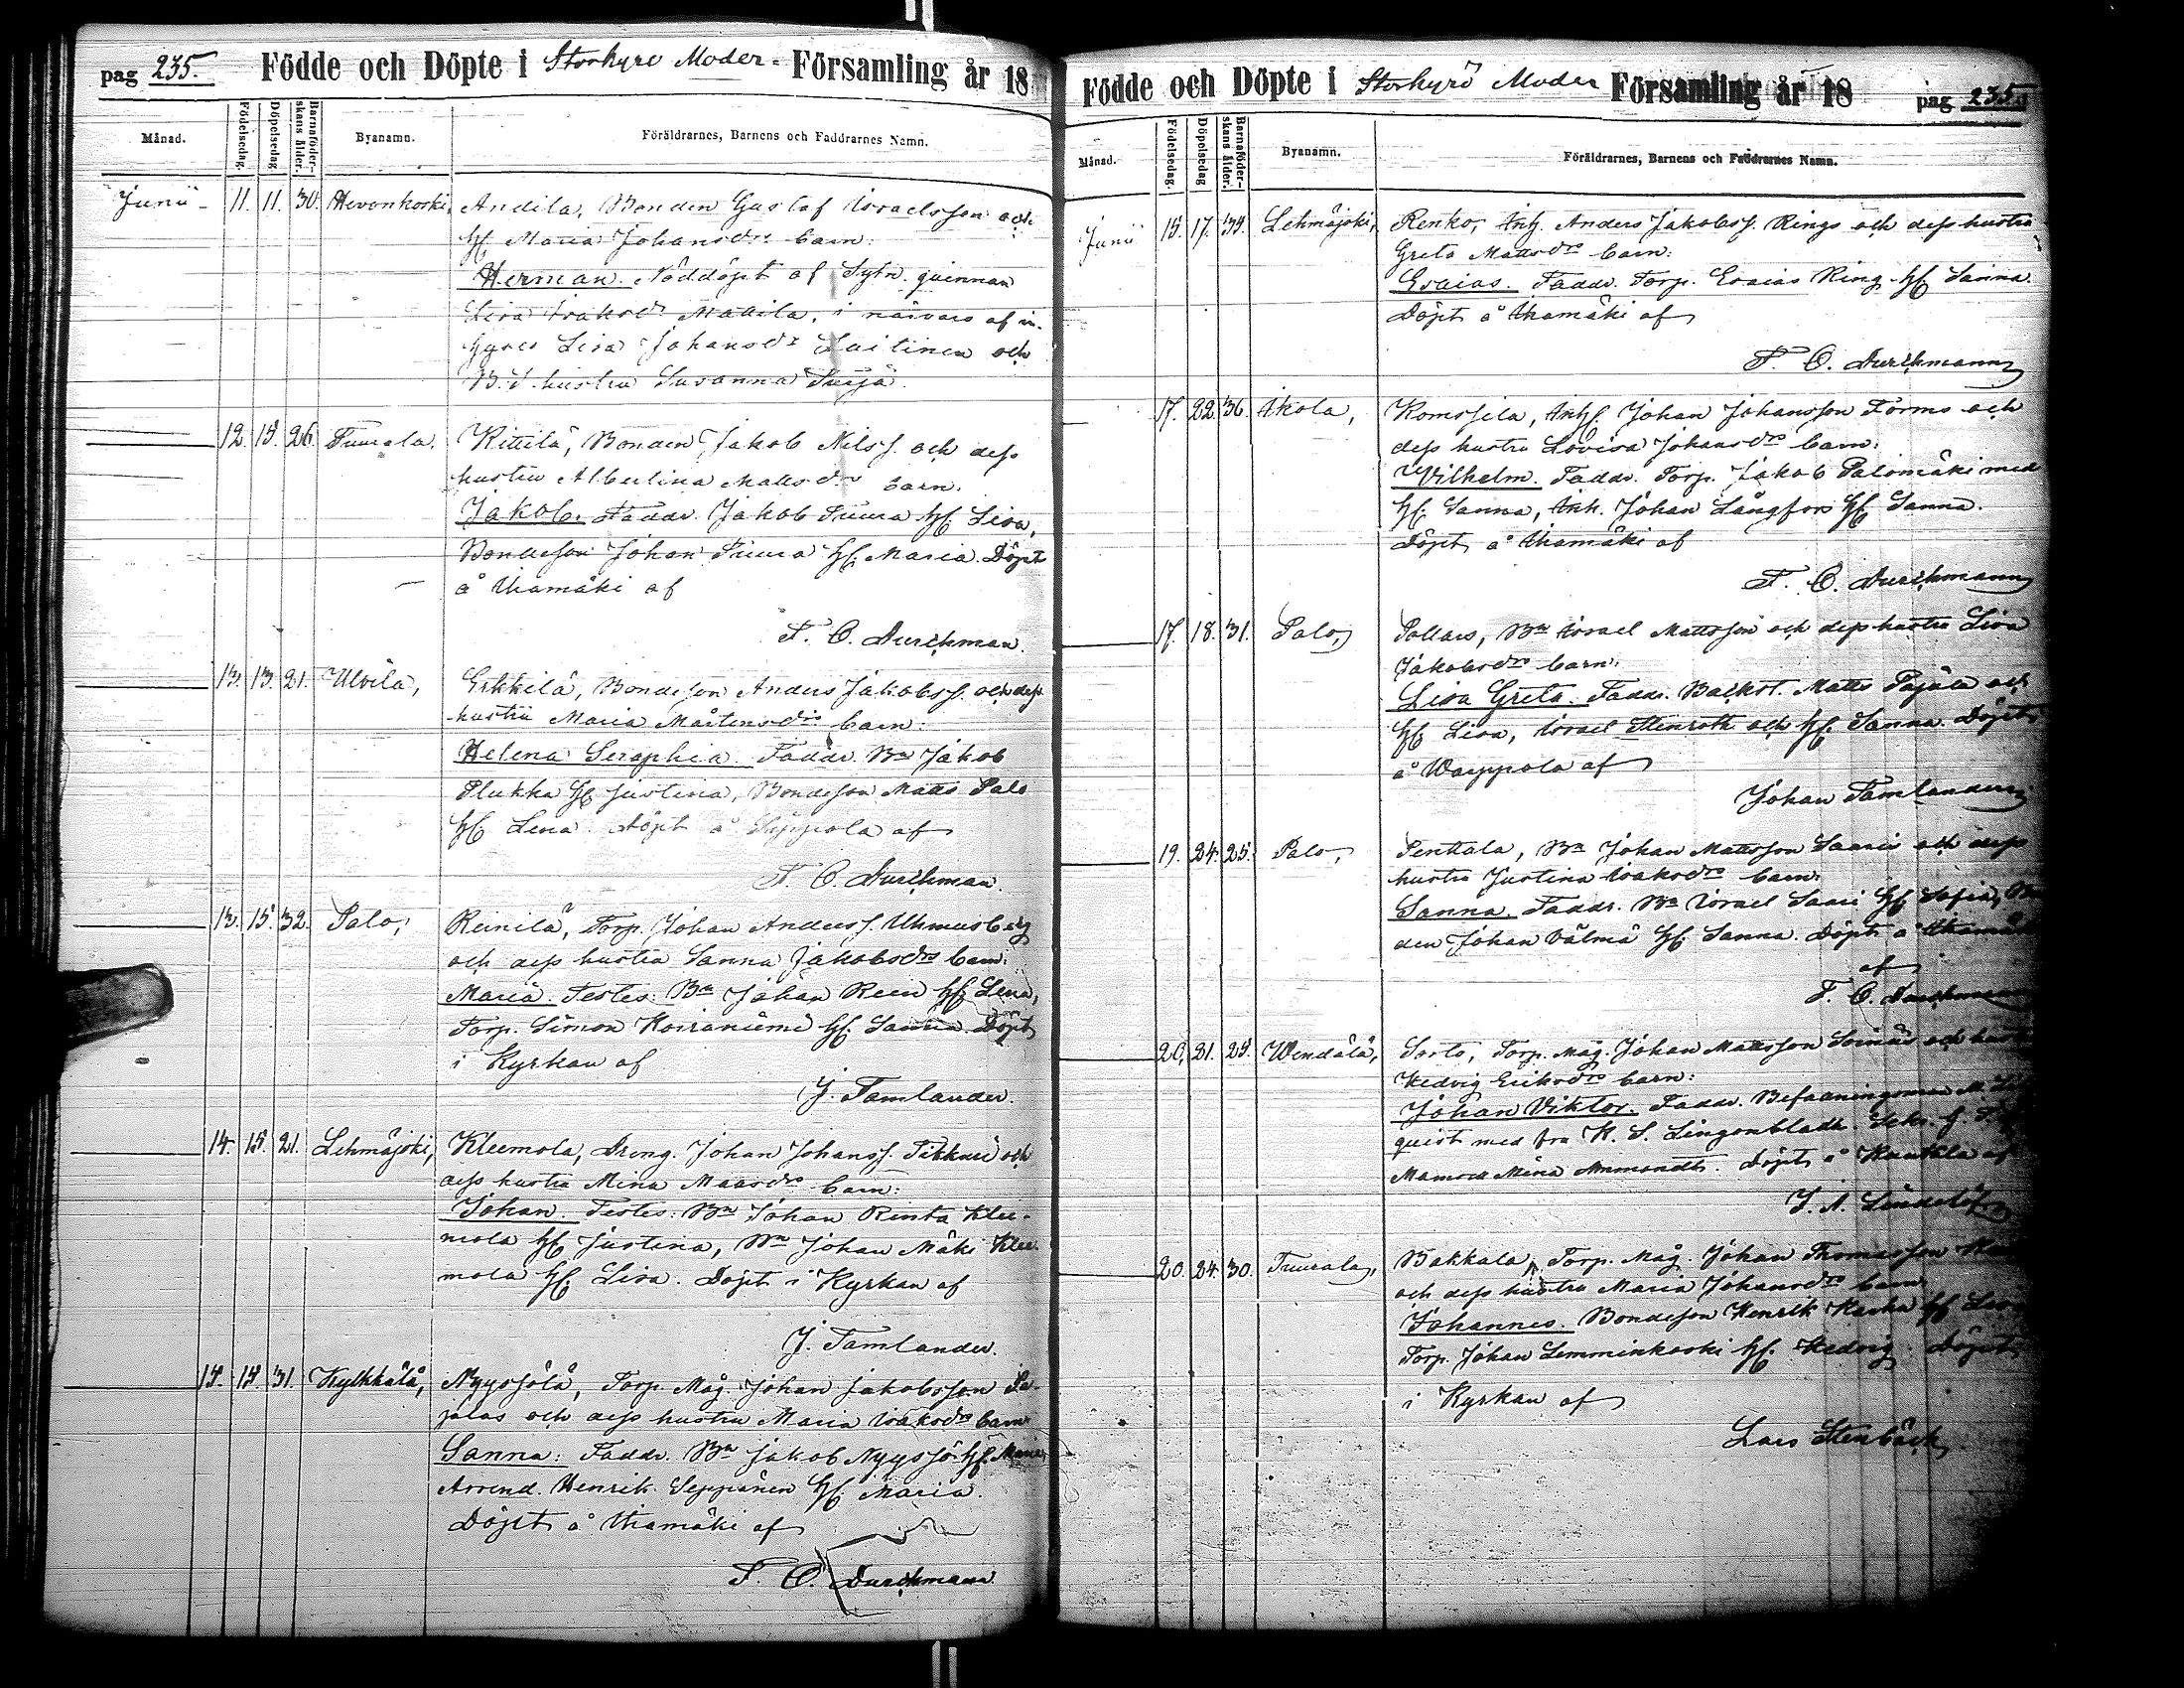 pag 235. Födde och Döpte i Storkyro Moder- Församling år 18
Månad. Födelsedag. Döpelsedag Barnaföder-skans ålder. Byanamn. Föräldrarnes, Barnens och Faddrarnes Namn.
Junii 11. 11. 30. Hevonkoski, Andila, Bonden Gustaf Israelsson och
hf Maria Johansdr barn:
Herman. Nöddöpt af Sytn. quinnan
Lisa Isaksdr Mattila, i närvaro af in-
hyses Lisa Johansdr Luitinen och
B. S. hustru Susanna
12. 15. 26. Tuurala. Kittilä, Bonden Jakob Nilss. och dess
hustru Albertina Mattsdr barn.
Jakob. Faddr. Jakob Tuura hf Lisa,
Bondeson Johan Tuura hf Maria. Döpt
å Ikamäki af
F. O. Durchman.
13. 13. 21. Ulvila, Erkkilä, Bondeson Anders Jakobss. och dess
hustru Maria Mårtensdr barn:
Helena Seraphia. Faddr. Bn Jakob
Plukka hf Justina, Bondeson Matts Palo
hf Lena. Döpt å Seppola af
F. O. Durchman.
13. 15. 32. Palo, Reinilä, Torp. Johan Anderss. Uhmusberg
och dess hustru Sanna Jakobsdr barn:
Maria. Testes: Bn Johan Rein hf Lena,
Torp. Simon Koiraniemi hf Sanna. Döpt
i Kyrkan af
J. Tamlander.
14. 15. 21. Lehmäjoki, Kleemola, Dreng. Johan Johanss. Tikkari och
dess hustru Mina Maasdr barn:
Johan. Testes: Bn Johan Rinta Klee-
mola hf Justina, Bn Johan Mäki Klee-
mola hf Lisa. Döpt i Kyrkan af
J. Tamlander.
15. 15. 31. Kylkkälä, Nyyssölä, Torp. Måg. Johan Jakobsson Pa-
jalas och dess hustru Maria Isaksdr barn
Sanna: Faddr. Bn Jakob Nyyssö hf Maria,
Arrend. Henrik Seppänen hf Maria.
Döpt å Ikamäki af
F. O. Durchman
Födde och Döpte i Storkyrö Moder Församling år 18 pag 235.
Månad. Födelsedag. Döpelsedag Barnaföder-skans ålder. Byanamn. Föräldrarnes, Barnens och Faddrarnes Namn.
Junii 15. 17. 34. Lehmäjoki, Renko, Anders Jakobss. Rings och dess hustru
Greta Mattsdr barn:
Esaias. Faddr. Torp. Esaias Ring hf Sanna.
Döpt å Ikamäki af
F. O. Durchman
17. 22. 36. Ikola, Komssila, Johan Johansson Forms och
dess hustru Lovisa Johansdr barn:
Vilhelm. Faddr. Torp. Jakob Palomäki med
hf. Sanna, Johan Långfors hf Sanna.
Döpt å Ikamäki af
F. O. Durchman
17. 18. 31. Palo, Pollars, Bn Israel Mattsson och dess hustru Lisa
Jakobsdr barn:
Lisa Greta. Faddr. Backst. Matts Pajula och
hf Lisa, Israel Stenroth och hf. Sanna. Döpt
å Warppola af
Johan Tamlander
19. 24. 25. Palo, Penttala, Bn Johan Mattsson Saari och dess
hustru Justina Isaksdr barn:
Sanna. Faddr. Bn Israel Saari hf Sofia,
den Johan Välmä hf. Sanna. Döpt å
af
F. O. Durchman
20. 21. 25. Wendälä, Sorto, Torp. Måg. Johan Mattsson Soinis och
Hedvig Eriksdr barn:
Johan Viktor. Faddr. Befaaningsman M.
quist med fru K. S. Lingonbladh.
Mamsell Mina Ammondt. Döpt å af
J. A. Lindelöf
20. 24. 30. Tuurala, Bakkala, Torp. Måg. Johan Thomasson
och dess hustru Maria Johansdr barn
Johannes. Bondeson Henrik Karka hf Lisa
Torp. Johan Lemminkoski hf. Hedvig. Döpt
i Kyrkan af
Lars Stenbäck.